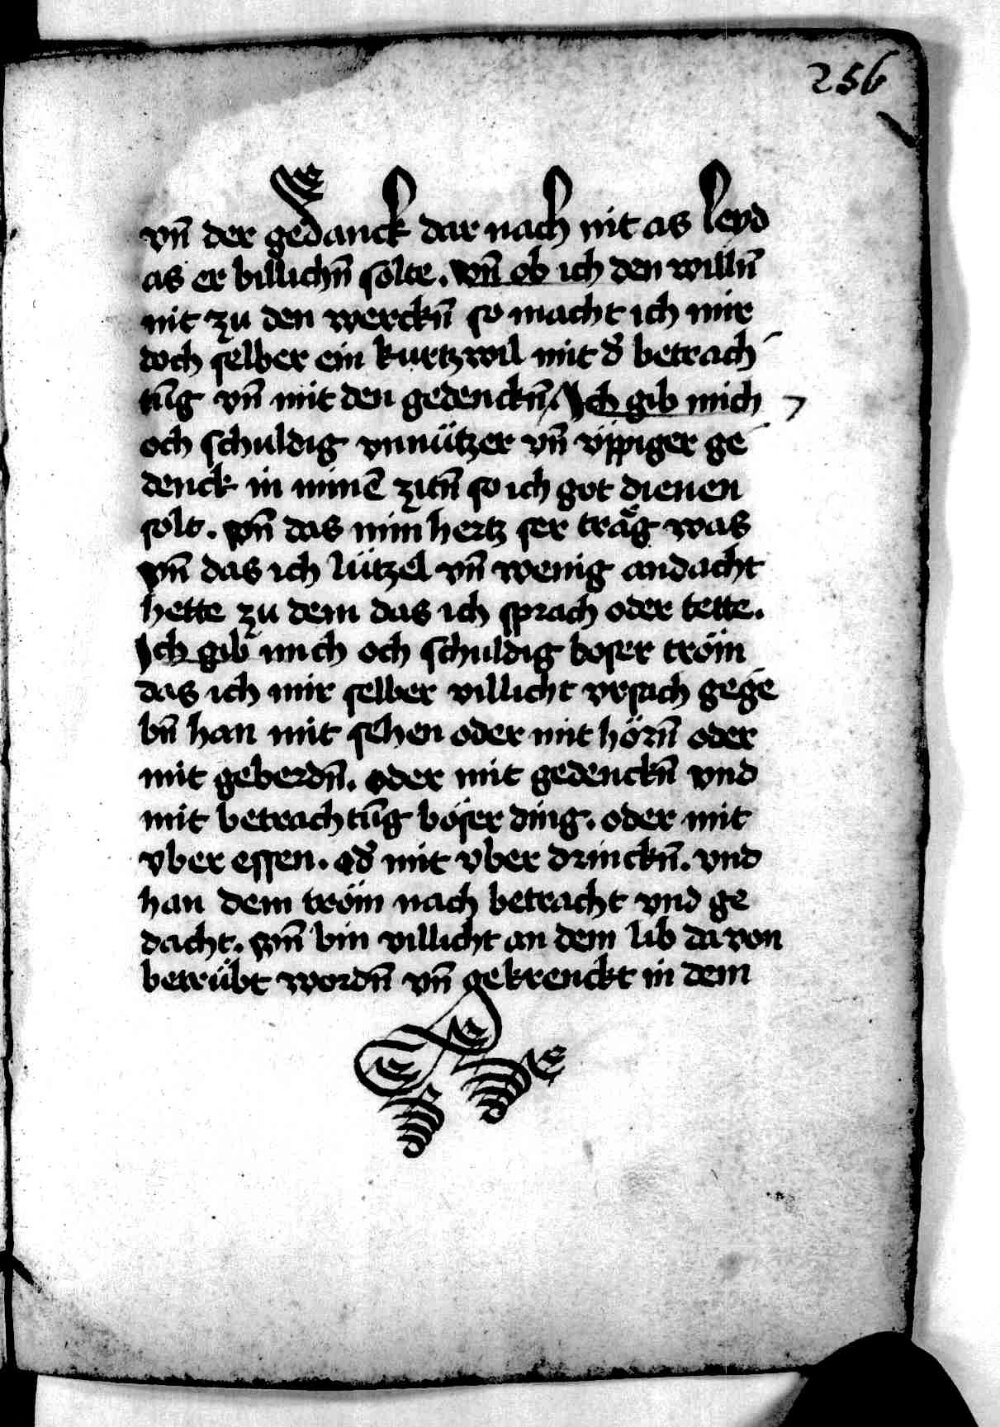 256
vn̄ der gedanck dar nach nit as leyd
as er billichn̄ solte. vn̄ ob ich den willn̄
nit zu den werckn̄ so macht ich mir
doch selber ein kurtzwil mit d̄ betrach
tūg vn̄ mit den gedenckn̄. Ich gib mich
och schuldig vnnützer vn̄ üppiger ge
denck in minē zitn̄ so ich got dienen
solt. vn̄ das min hertz ser träg was
vn̄ das ich lützel vn̄ wenig andacht
hette zu dem das ich sprach oder tette.
Ich gib mich och schuldig boser tröm
das ich mir selber villicht vrsach gege
bn̄ han mit sehen oder mit hörn̄ oder
mit geberdn̄. oder mit gedenckn̄ vnd
mit betrachtūg böser ding. oder mit
vber essen. od̄ mit vber drinckn̄. vnd
han dem tröm nach betracht vnd ge
dacht. vn̄ bin villicht an dem lib da von
betrübt wordn̄ vn̄ gekrenckt in dem